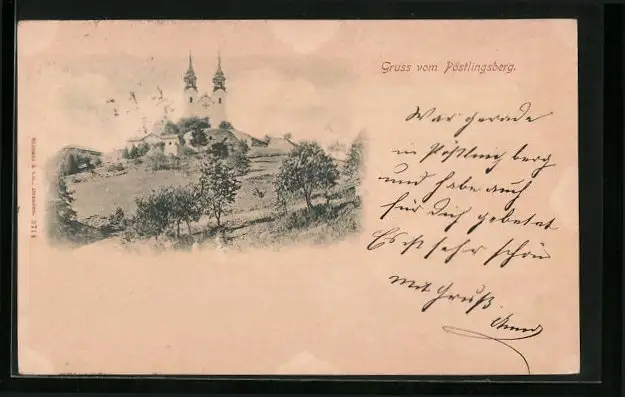 Gruss vom Pöstlingsberg.
War gerade
in Pöstlingberg
und habe auch
für Dich gebetet
Es ist sehr schön
mit Gruß